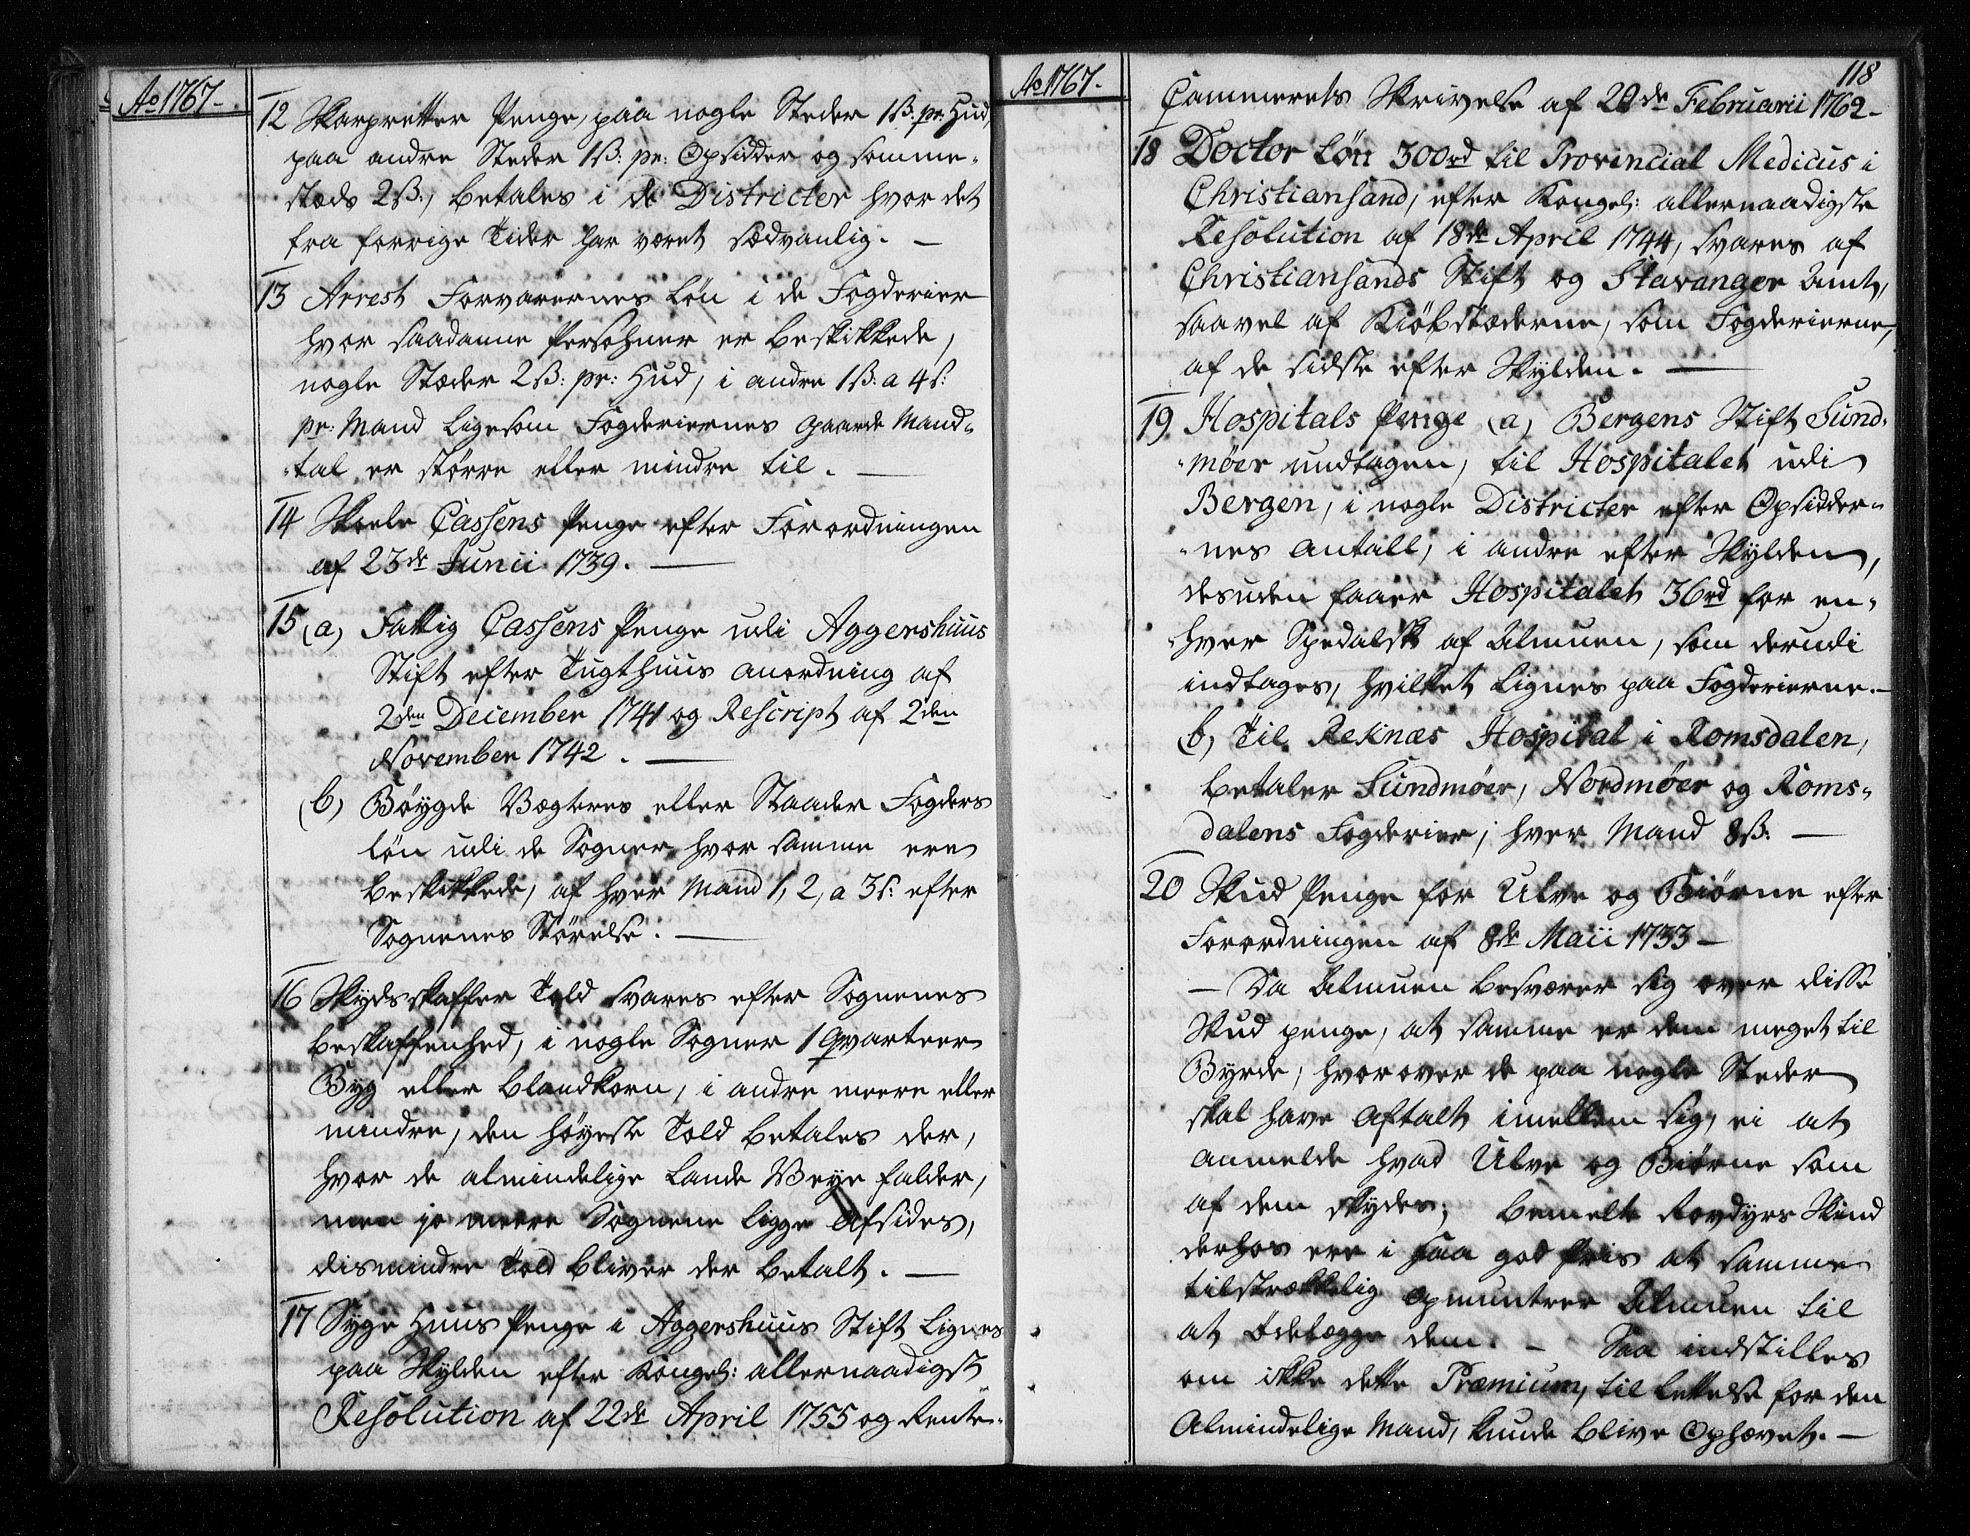 Ao 1767.
12 Skarpretter Penge, paa nogle Steder 1ß. pr. Hud,
paa andre Steder 1ß: pr: Opsidder og somme-
stæds 2ß., betales i de Districter hvor det
fra forrige Tider har været sædvanlig. —
13 Arrest Forvarernes Løn i de Fogderier
hvor saadanne Persohner er beskikkede,
nogle Stæder 2ß: pr: Hud, i andre 1ß: a 4ß:
pr: Mand ligesom Fogderiernes gaarde Mand-
tal er større eller mindre til. —
14 Skole Cassens Penge efter Forordningen
af 23de Junii 1739. —
15 (a) Fattig Cassens Penge udi Aggershuus
Stift efter Tugthuus Anordning af
2den December 1741 og Rescript af 2den
November 1742. —
(b) Bøygde Vægteres eller Staader Fogders
Løn udi de Sogner hvor samme ere
beskikkede, af hver Mand 1, 2, a 3ß: efter
Sognenes Störelse. —
16 Skydsskaffer Told svares efter Sognenes
beskaffenhed, i nogle Sogner 1 Qvarteer
Byg eller Blandkorn, i andre meere eller
mindre, den høyeste Told betales der,
hvor de almindelige Lande Veye falder,
men jo meere Sognene ligge Afsides,
dismindre Told bliver der betalt. —
17 Syge Huus Penge i Aggershuus Stift Lignes
paa Skylden efter Kongel: allernaadigst
Resolution af 22de April 1755 og Rente-
Ao 1767.
118
Cammerets Skrivelse af 20de Februarii 1762.
18 Doctor Løn 300rd til Provincial Medicus i
Christiansand, efter Kongel: allernaadigste
Resolution af 18de April 1744, svares af
Christiansands Stift og Stavanger Amt,
saavel af Kiöbstæderne, som Fogderierne,
af de sidste efter Skylden. —
19 Hospitals Penge (a) Bergens Stift Sund-
møer undtagen, til Hospitalet udi
Bergen, i nogle Districter efter Opsidder-
nes Antall, i andre efter Skylden,
desuden faaer Hospitalet 36rd for en-
hver Spedalsk af Almuen, som derudi
indtages, hvilket Lignes paa Fogderierne. —
(b) Til Reknæs Hospital i Romsdalen,
betaler Sundmøer, Nordmøer og Roms-
dalens Fogderier, hver Mand 8ß. —
20 Skud Penge for Ulve og Biörne efter
Forordningen af 8de Maii 1733 —
— Da Almuen besværer sig over disse
Skud penge, at samme er dem meget til
Byrde, hvorover de paa nogle Steder
skal have Aftalt imellem sig, ei at
anmelde hvad Ulve og Biörne som
af dem skydes; bemelte Rovdyrs Skind
derhos ere i saa god Pris at samme
tilstrækkelig opmuntrer Almuen til
at ödelægge dem. — Saa indstilles
om ikke dette Præmium, til lettelse for den
Almindelige Mand, kunde blive Ophævet. —